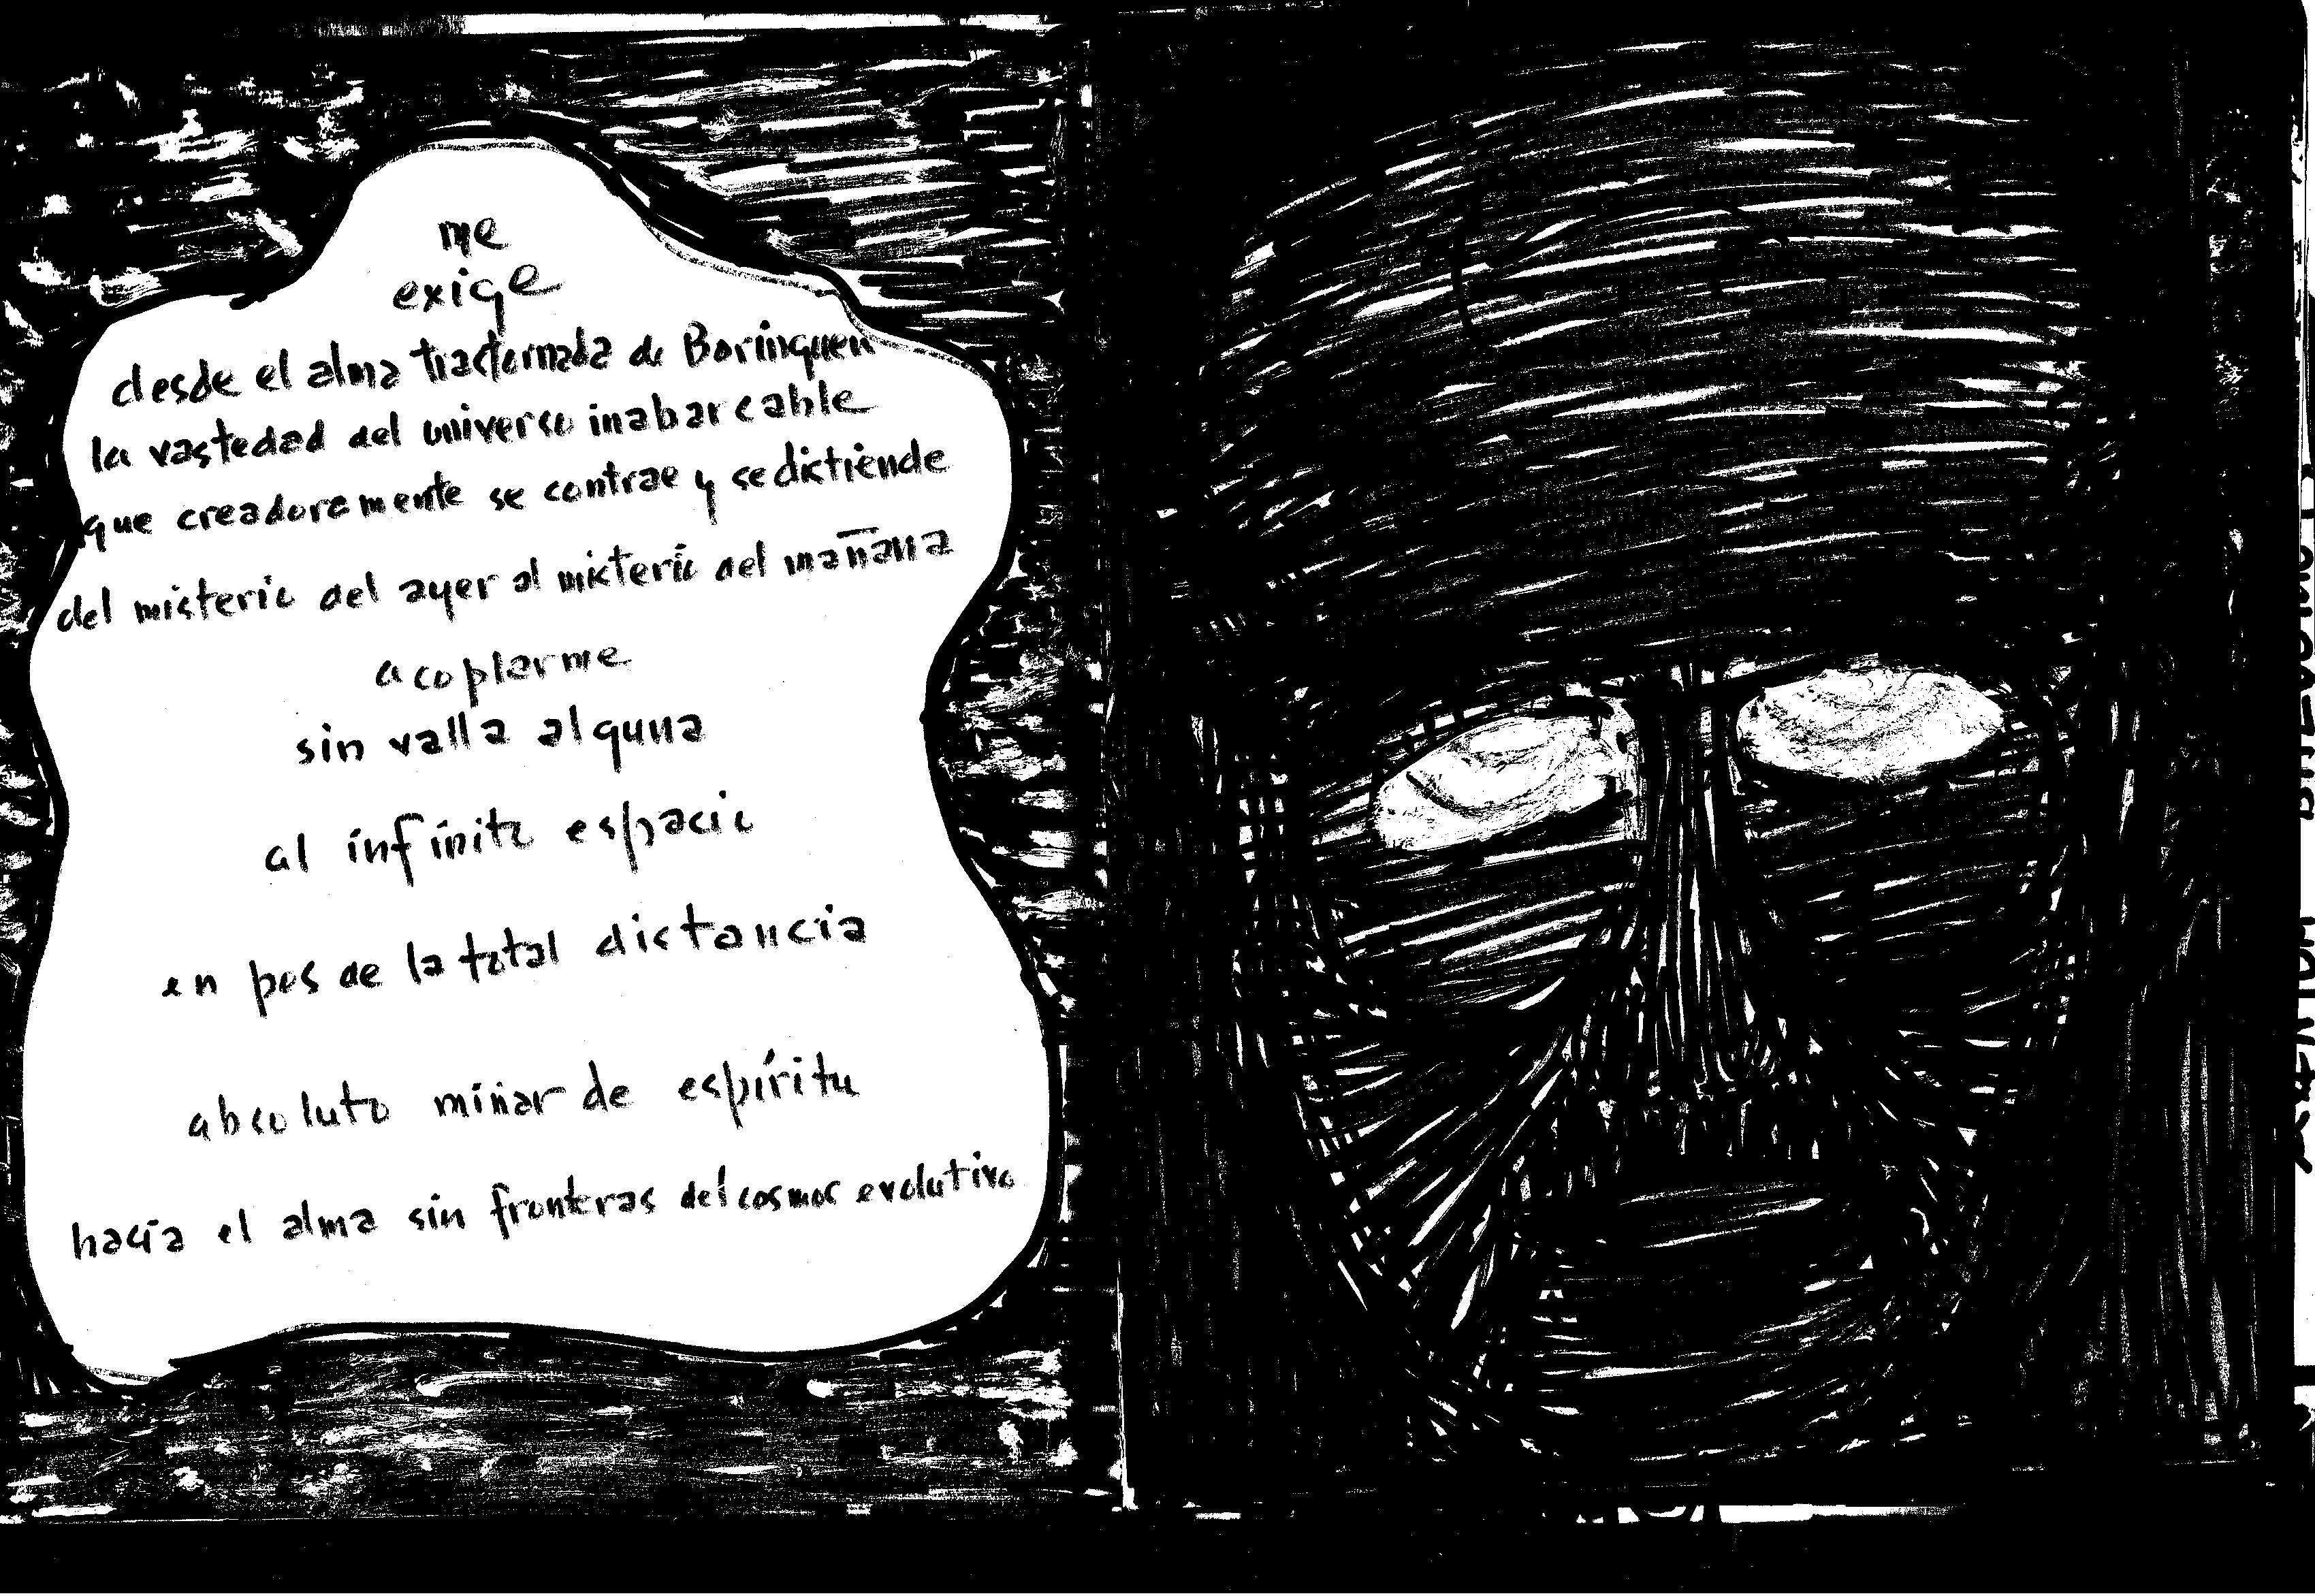 me
exige
desde el alma trastornada de Borinquen
la vastedad del universo inabarcable
que creadoramente se contrae y se distiende
del misterio del ayer al misterio del mañana
acoplarme
sin valla alguna
al infinito espacio
en pos de la total distancia
absoluto minar de espíritu
hacia el alma sin fronteras del cosmos evolutivo